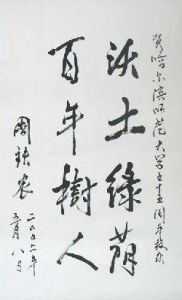 贺哈尔滨师范大学五十五周年校庆
沃土绿荫
百年树人
周铁农
二〇〇六年
五月八日